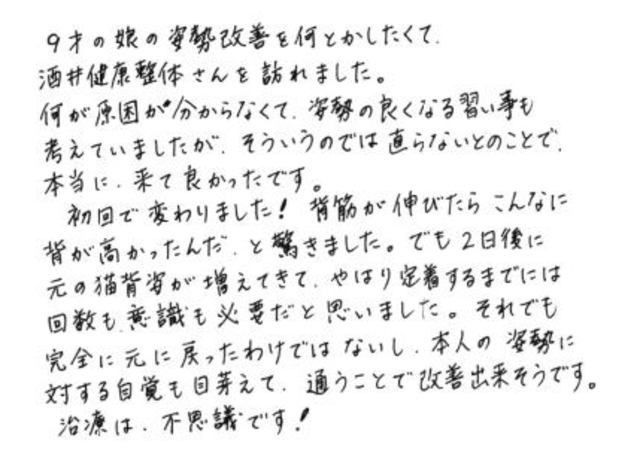 9才の娘の姿勢改善を何とかしたくて、
酒井健康整体さんを訪れました。
何が原因が分からなくて、姿勢の良くなる習い事も
考えていましたが、そういうのでは直らないとのことで、
本当に、来て良かったです。
初回で変わりました！背筋が伸びたらこんなに
背が高かったんだ、と驚きました。でも2日後に
元の猫背姿が増えてきて、やはり定着するまでには
回数も、意識も必要だと思いました。それでも
完全に元に戻ったわけではないし、本人の姿勢に
対する自覚も目芽えて、通うことで改善出来そうです。
治療は、不思議です！